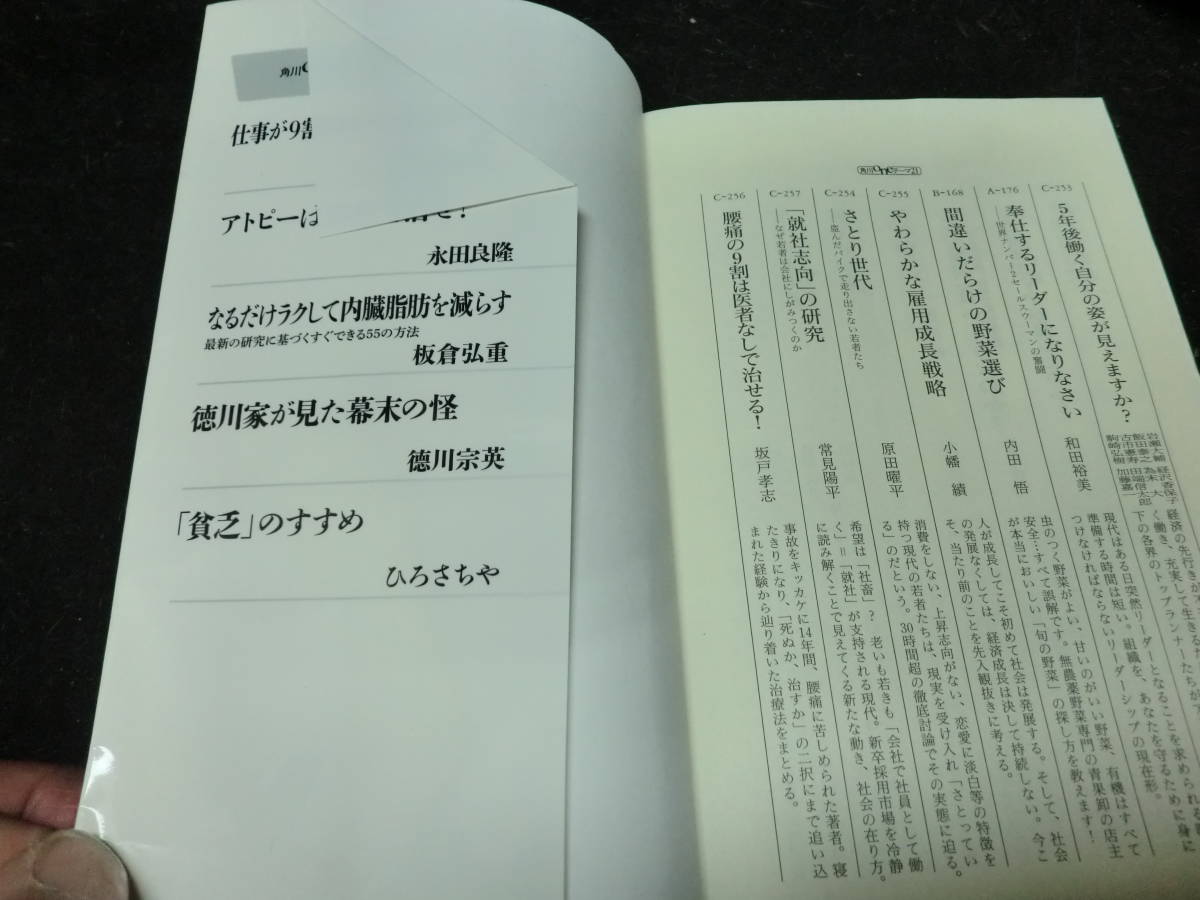 角川
仕事が9割
アトピーは
永田良隆
なるだけラクして内臓脂肪を減らす
最新の研究に基づくすぐできる55の方法
板倉弘重
徳川家が見た幕末の怪
德川宗英
「貧乏」のすすめ
ひろさちや
角川oneテーマ21
C-253
5年後働く自分の姿が見えますか?
岩瀬大輔 経沢香保子
飯田泰之 為末 大
古市憲寿 田端信太郎
駒崎弘樹 加藤嘉一
く働き、充実して生きるた
下の各界のトップランナーたちが
A-176
奉仕するリーダーになりなさい
―世界ナンバー2セールスウーマンの奮闘
和田裕美
現代はある日突然リーダーとなることを求められる
準備する時間は短い。組織を、あなたを守るために身に
つけなければならないリーダーシップの現在形。
B-168
間違いだらけの野菜選び
内田 悟
虫のつく野菜がよい、甘いのがいい野菜、有機はすべて
安全…すべて誤解です。無農薬野菜専門の青果卸の店主
が本当においしい「旬の野菜」の探し方を教えます!
C-255
やわらかな雇用成長戦略
小幡 績
人が成長してこそ初めて社会は発展する。そして、社会
の発展なくしては、経済成長は決して持続しない。今こ
そ、当たり前のことを先入観抜きに考える。
C-254
さとり世代
―盗んだバイクで走り出さない若者たち
原田曜平
消費をしない、上昇志向がない、恋愛に淡白等の特徴を
持つ現代の若者たちは、現実を受け入れ「さとってい
る」のだという。30時間超の徹底討論でその実態に迫る。
C-257
「就社志向」の研究
―なぜ若者は会社にしがみつくのか
常見陽平
希望は「社畜」? 老いも若きも「会社で社員として働
く」=「就社」が支持される現代。新卒採用市場を冷静
に読み解くことで見えてくる新たな動き、社会の在り方。
C-256
腰痛の9割は医者なしで治せる!
坂戸孝志
事故をキッカケに14年間、腰痛に苦しめられた著者。寝
たきりになり、「死ぬか、治すか」の二択にまで追い込
まれた経験から辿り着いた治療法をまとめる。